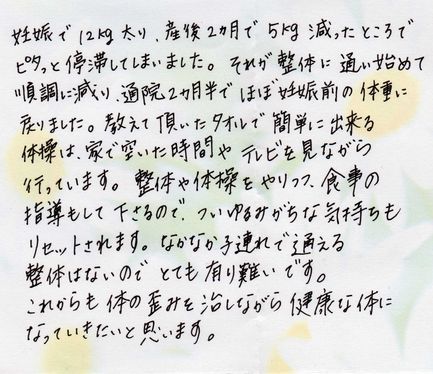 妊娠で12kg太り、産後2カ月で5kg減ったところで
ピタっと停滞してしまいました。それが整体に通い始めて
順調に減り、通院2カ月半でほぼ妊娠前の体重に
戻りました。教えて頂いたタオルで簡単に出来る
体操は、家で空いた時間やテレビを見ながら
行っています。整体や体操をやりつつ、食事の
指導もして下さるので、ついゆるみがちな気持ちも
リセットされます。なかなか子連れで通える
整体はないのでとても有り難いです。
これからも体の歪みを治しながら健康な体に
なっていきたいと思います。